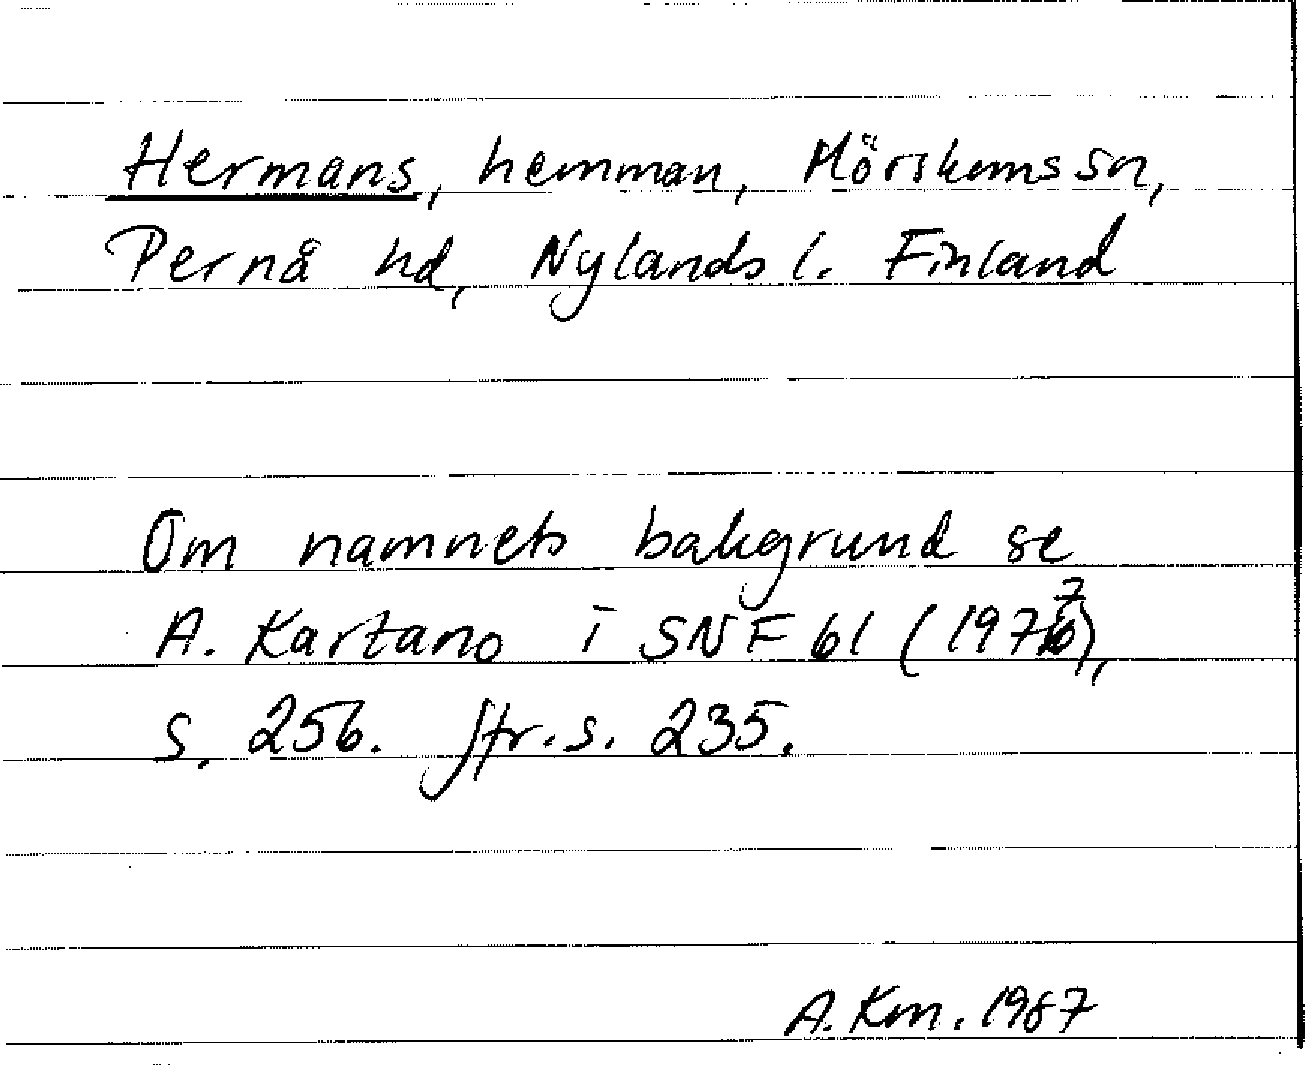 Hermans, hemman, Mörskoms sn,
Pernå hd, Nylands l. Finland
Om namnets bakgrund se
A. Kartano i SNF 61 (1977),
s. 256. Jfr. s. 235.
A. Km. 1987